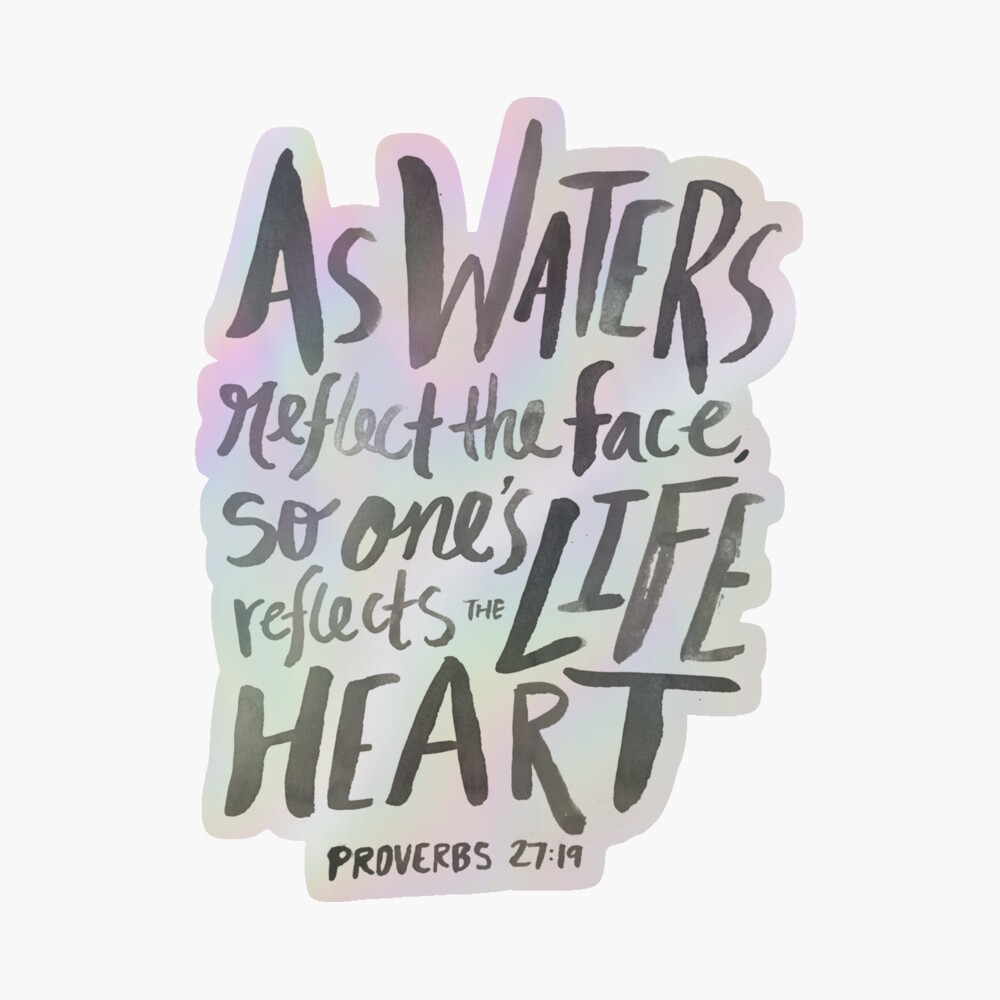 As WATERS
reflect the face,
so one's LIFE
reflects THE
HEART
PROVERBS 27:19